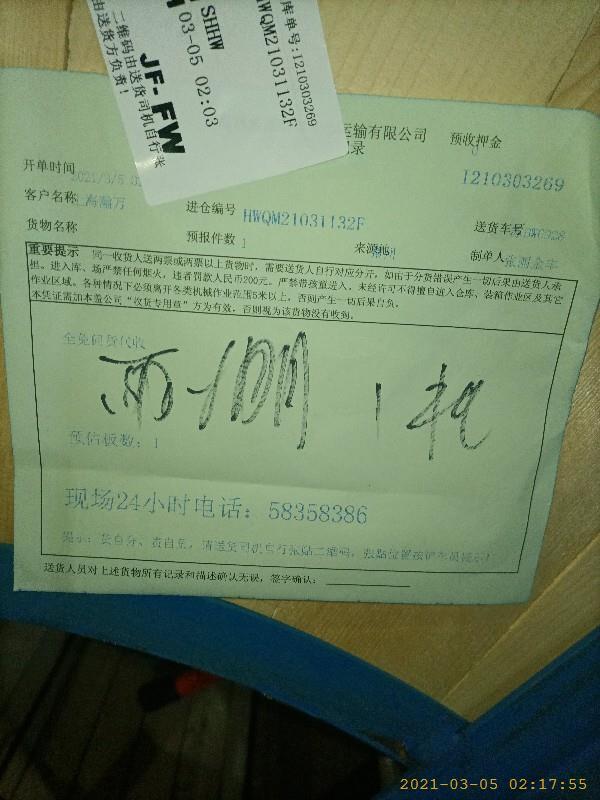 库单号:1210303269
HWQM21031132F
SHHW
03-05 02:03
JF-FW
二维码由送货司机自行张
由送货方负责!
运输有限公司
预收押金
录
0
开单时间
2021/3/5
1210303269
客户名称
上海瀚万
进仓编号
HWQM21031132F
送货车号
货物名称
预报件数 1
来源地
制单人
重要提示 同一收货人送两票或两票以上货物时,需要送货人自行对应分开,如由于分货错误产生一切后果由送货人承
担。进入库、场严禁任何烟火,违者罚款人民币200元。严禁带孩童进入,未经许可不得擅自进入仓库、装箱作业区及其它
作业区域。各种情况下必须离开各类机械作业范围5米以上,否则产生一切后果自负。
本凭证需加本盖公司“收货专用章”方为有效,否则视为该货物没有收到。
全免卸货代收
1 托
预估板数:1
现场24小时电话:58358386
提示:货自分、责自负,请送货司机自行张贴二维码,张贴位置按
送货人员对上述货物所有记录和描述确认无误,签字确认:
2021-03-05 02:17:55